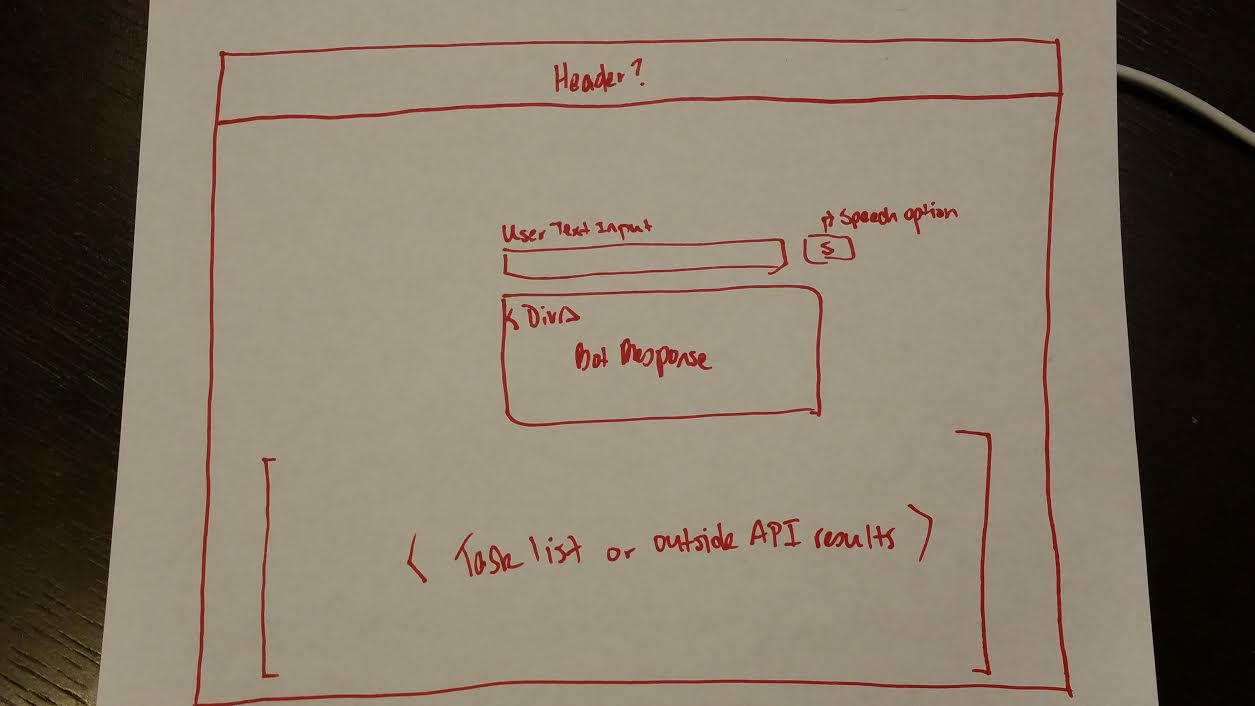 Header?
User Text Input
Speech option
S
<Div>
Bot Response
< Task list or outside API results >